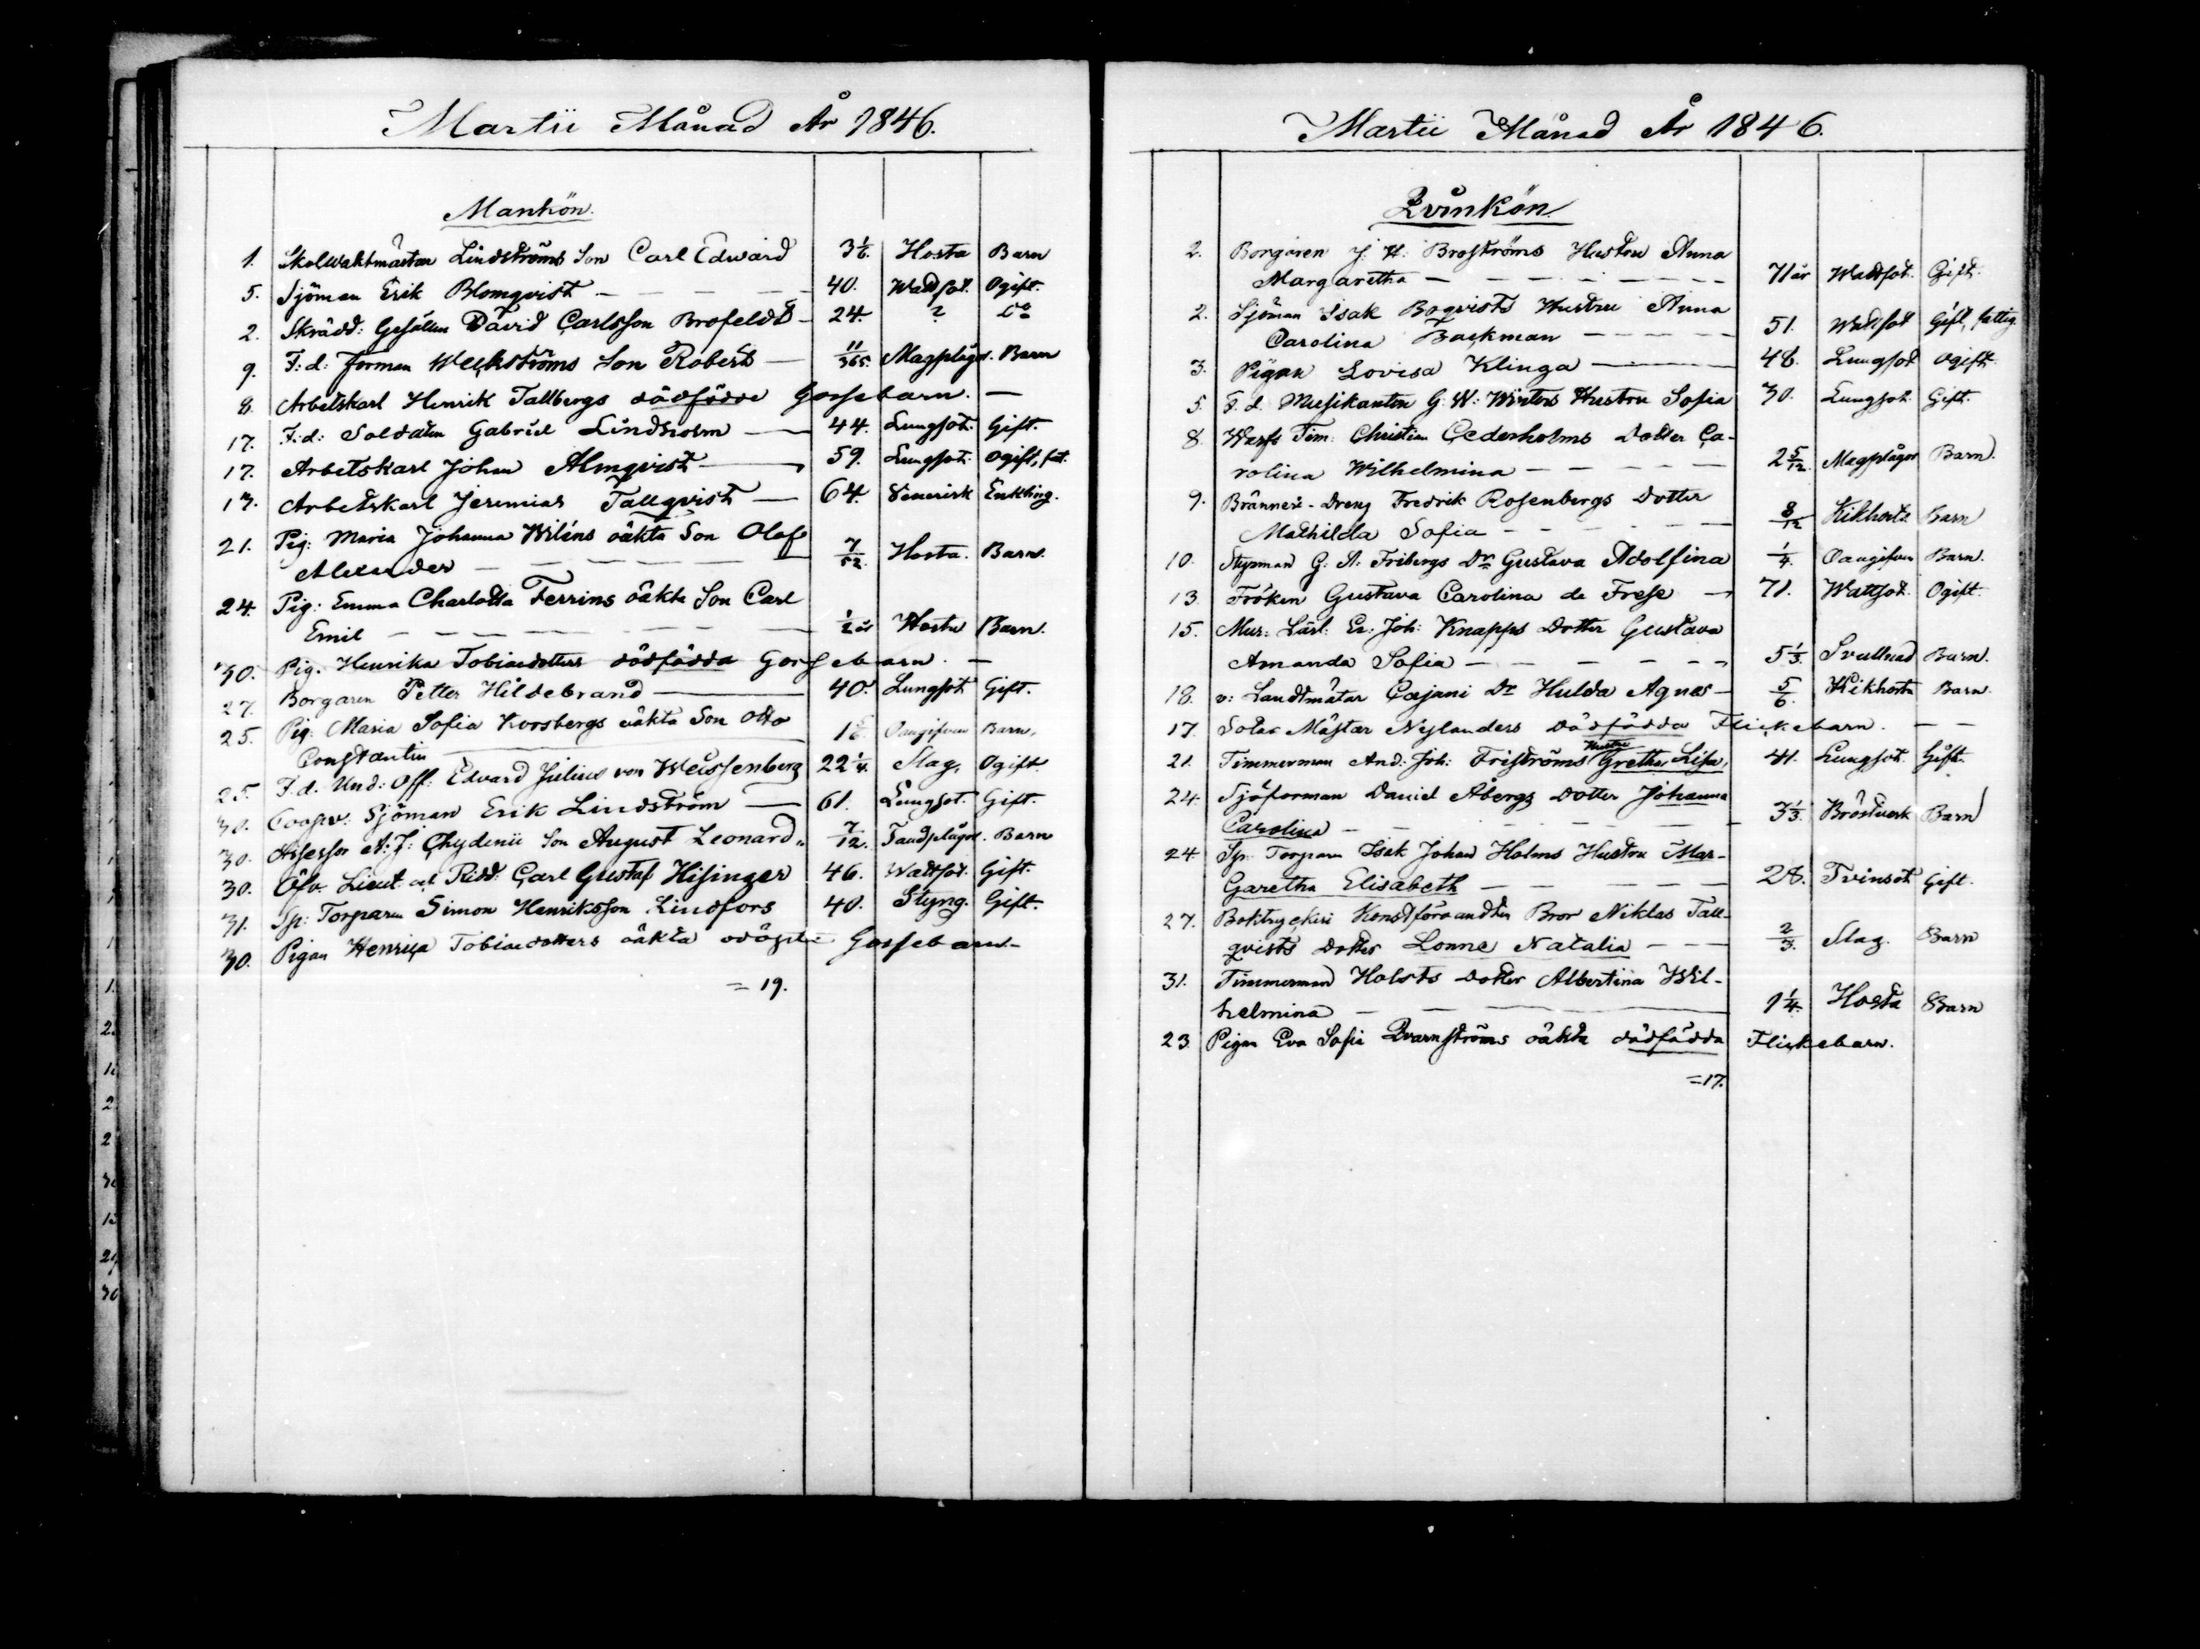 Martii Månad År 1846.
Mankön.
1. Skolwaktmästar Lindströms Son Carl Edward 3 1/6. Hosta Barn
5. Sjöman Erik Blomqvist — 40. Wattsot. Ogift.
2. Skrädd: Gesällen David Carlsson Brofeldt — 24. ? do
9. F: d: Forman Weckströms Son Robert — 11/365. Magplågor. Barn
8. Arbetskarl Henrik Tallbergs dödfödde Gossebarn. —
17. F: d: Soldaten Gabriel Lindholm — 44. Lungsot. Gift.
17. Arbetskarl Johan Almqvist — 59. Lungsot. Ogift, fat.
17. Arbetskarl Jeremias Tallqvist — 64. Venerisk Enkling.
21. Pig: Maria Johanna Wiléns oäkta Son Olof
Alexander — 7/12. Hosta. Barn.
24. Pig: Emma Charlotta Ferrins oäkta Son Carl
Emil — 1/2 år Hosta Barn.
30. Pig: Henrika Tobiaedotters dödfödda Gossebarn. —
27. Borgaren Petter Hildebrand — 40. Lungsot Gift.
25. Pig: Maria Sofia Korsbergs oäkta Son Otto
Constantin — Oangifven Barn.
25. F. d. Und: Off: Edvard Julius von Weissenberg 22 1/4. Slag. Ogift.
30. Sjöman Erik Lindström — 61. Lungsot. Gift.
30. Assessor A: J: Chydenii Son August Leonard 7/12. Tandplågor. Barn
30. Öfv. Lieut. och Ridd: Carl Gustaf Hisinger 46. Wattsot. Gift.
31. Sp: Torparen Simon Henriksson Lindfors 40. Styng. Gift.
30. Pigan Henrica Tobiaedotters oäkta Gossebarn —
= 19.
Martii Månad År 1846.
Qvinkön
2. Borgaren J: H: Broströms Hustru Anna
Margaretha — 71 år Wattsot. Gift.
2. Sjöman Isak Boqvists Hustru Anna
Carolina Backman — 51. Wattsot Gift, fattig.
3. Pigan Lovisa Klinga — 48. Lungsot Ogift.
5. F. d. Musikanten G: W: Winters Hustru Sofia 30. Lungsot. Gift.
8. Warfs Tim: Christian Cederholms Dotter Ca-
rolina Wilhelmina — 2 5/12. Magplågor Barn.
9. Bränneri-Dreng Fredrik Rosenbergs Dotter
Mathilda Sofia — 8/12 Kikhosta Barn
10. Styrman G: A: Fribergs Dr Gustava Adolfina 1/4. Oangifven Barn.
13. Fröken Gustava Carolina de Frese — 71. Wattsot. Ogift.
15. Mur: Lärl: Er: Joh: Knapps Dotter Gustava
Amanda Sofia — 5 1/3. Svullnad Barn.
18. v: Landtmätar Cajani Dr Hulda Agnes — 5/6. Kikhosta Barn.
17. Sotar Mästar Nylanders Dödfödda Flickebarn. — —
21. Timmerman And: Joh: Friströms Hustru Gretha Lisa, 41. Lungsot. Gift.
24. Sjöforman Daniel Åbergs Dotter Johanna
Carolina — 3 1/3. Bröstverk Barn
24. Sp: Torparn Isak Johan Holms Hustru Mar-
garetha Elisabeth — 28. Tvinsot Gift.
27. Boktryckeri Konstförvandten Bror Niklas Tall-
qvists Dotter Lonne Natalia — 2/3. Slag. Barn
31. Timmerman Holsts Dotter Albertina Wil-
helmina — 1 1/4. Hosta Barn
23. Pigan Eva Sofia Qvarnströms oäkta dödfödda Flickebarn.
= 17.